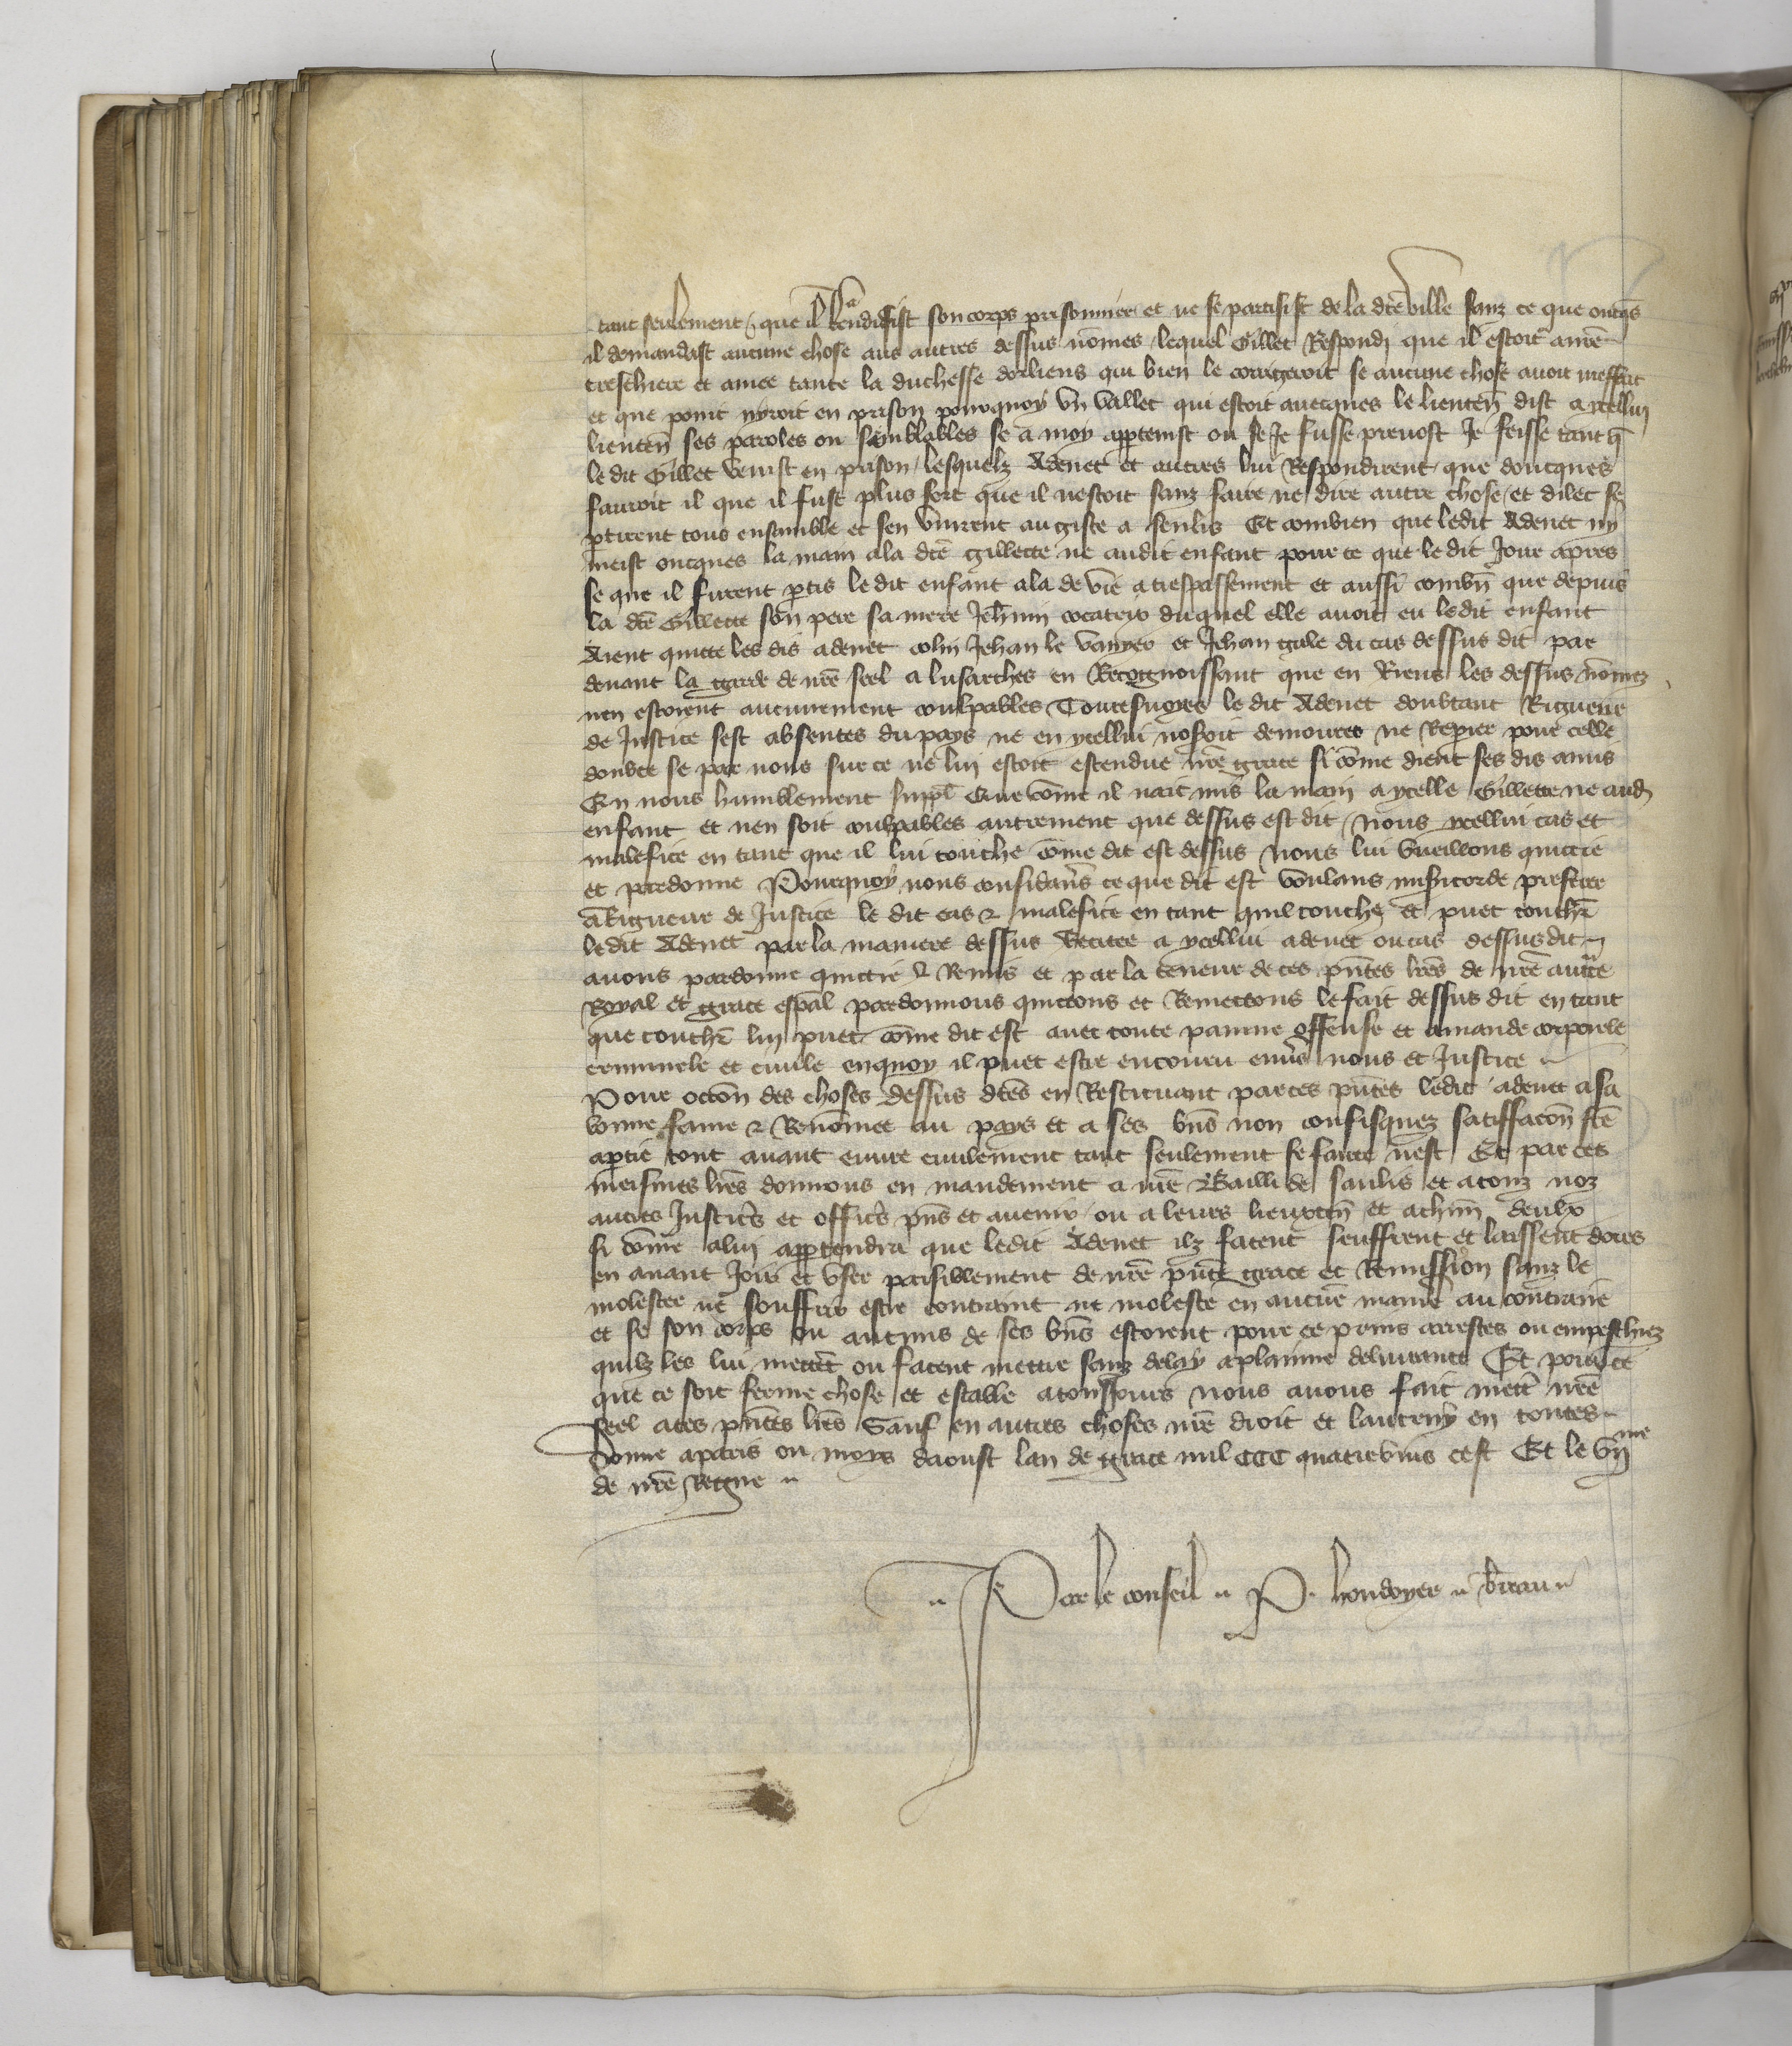 tant seulement que il rendisist son corps prisonnier et ne se partisist de la dcē ville sanz ce que oncq̄s
il demandast aucune chose aus autres dessus nōmes lequel Gillet Respondi que il estoit a nr̄e
treschiere et amee tante la duchesse dorliens qui bien le corrigeroit se aucune chose auoit meffait
et que point nyroit en prison pourquoy vn vallet qui estoit auecques le lieuten̄ dist a ycellui
lieuten̄ ses paroles ou semblables se a moy apptenist ou se Je fusse preuost Je feisse tant q̄
le dit Gillet venist en prison lesquelz Adenet et autres lui Respondirent que doncques
fauroit il que il fust plus fort que il nestoit sanz faire ne dire autre chose et dilec se
ptirent tous ensamble et sen vinrent au giste a senliz Et combien que ledit Adenet ny
meist oncques la main a la dcē gillette ne audit enfant pour ce que le dit Jour apres
se que il furent ptis le dit enfant ala de vie a trespassement et aussi combn̄ que depuis
la dcē Gillette son pere sa mere Jeh̄nin cocatrix duquel elle auoit eu ledit enfant
Aient quitte les dis adenet colin Jehan le vanyer et Jehan gale du cas dessus dit par
deuant la garde de nr̄e seel a lusarches en Recognoissant que en Riens les dessus nōmez
nen estoient aucunement coulpables Toutesuoyes le dit Adenet doubtant Rigueur
de Justice sest absentes du pays ne en ycellui noseroit demourer ne Repier pour celle
doubte se par nous sur ce ne lui estoit estendue nr̄e grace si cōme dient ses dis amis
En nous humblement suppl̄ Que cōme il nait mis la main a ycelle Gillette ne aud
enfant et nen soit coulpables autrement que dessus est dit nous ycellui cas et
malefice en tant que il lui touche cōme dit est dessus nous lui vueillons quittie
et pardonne Pourquoy nous considans ce que dit est voulans misicorde preferer
a Rigueur de Justice le dit cas & malefice en tant quil touche et puet touchr̄
ledit Adenet par la maniere dessus Recitee a ycellui adenet ou cas dessusdit
auons pardonne quittie & Remis et par la teneur de ces pn̄tes lr̄es de nr̄e auctte
Royal et grace esp̄al pardonnons quittons et Remettons le fait dessus dit en tant
que touchr̄ lui puet cōme dit est auec toute painne offense et amande corporele
criminele et ciuile en quoy il puet estre encouru enuers nous et Justice
Pour occon̄ des choses dessus dcēs en Restituant par ces pn̄tes ledit adenet a sa
bonne fame & Renōmee au pays et a ses bn̄s non confisquez satiffacon̄ fcē
a ptie tout auant euure ciuilement tant seulement se faicte nest Et par ces
meismes lr̄es donnons en mandement a nr̄e Bailli de sanlis et a touz noz
autres Justic̄s et offic̄s pn̄s et auenir ou a leurs lieuxten̄ et a chūn deulx
si cōme a lui apptendra que ledit Adenet ilz facent seuffrent et laissent dores
en auant Joir et vser paisiblement de nr̄e pn̄te grace et Remission sanz le
molester ne souffrir estre contraint ne moleste en aucūe manie au contraire
et se son corps ou aucuns de ses bn̄s estoient pour ce prins arrestes ou empeschiez
quilz les lui mettēt ou facent mettre sanz delay a plainne deliurance Et pour ce
que ce soit ferme chose et estable a tousiours nous auons fait mettr̄ nr̄e
seel a ces pn̄tes lr̄es Sauf en autres choses nr̄e droit et lautruy en toutes
Donne a paris ou moys daoust lan de grace mil CCC quatrevins et sept Et le vij me
de nr̄e Regne
Par le conseil P. houdoyer